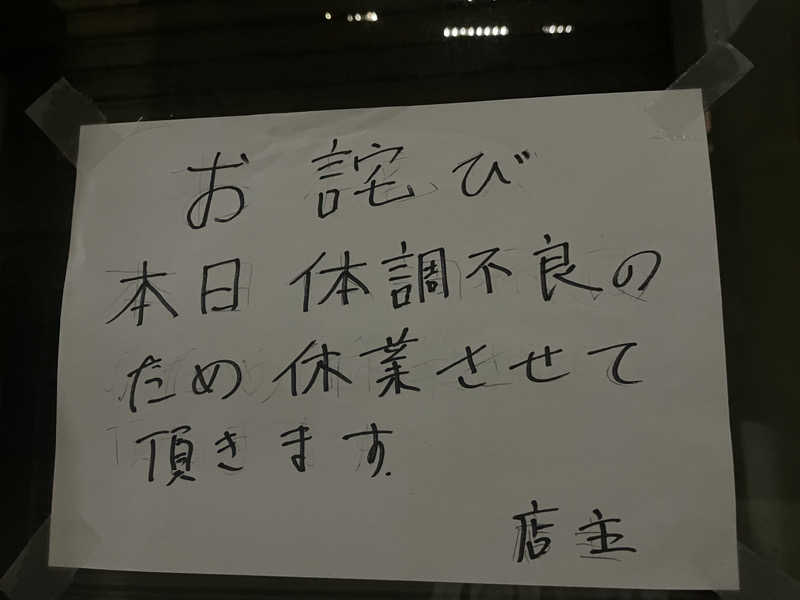 お詫び
本日体調不良の
ため休業させて
頂きます.
店主